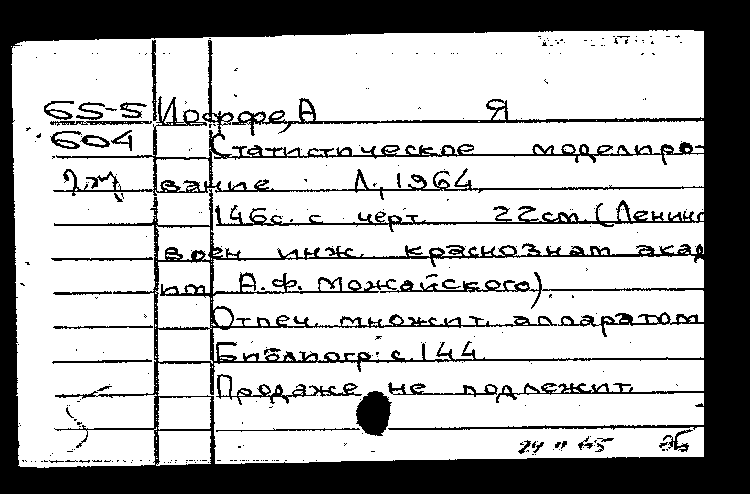 65-5 Иоффе, А Я
604 Статистическое моделиро-
вание. Л., 1964.
146с. с черт. 22см. (Ленинг
воен инж. краснознам акад
им А.Ф. Можайского).
Отпеч. множит. аппаратом
Библиогр: с. 144
Продаже не подлежит.
24 II 65